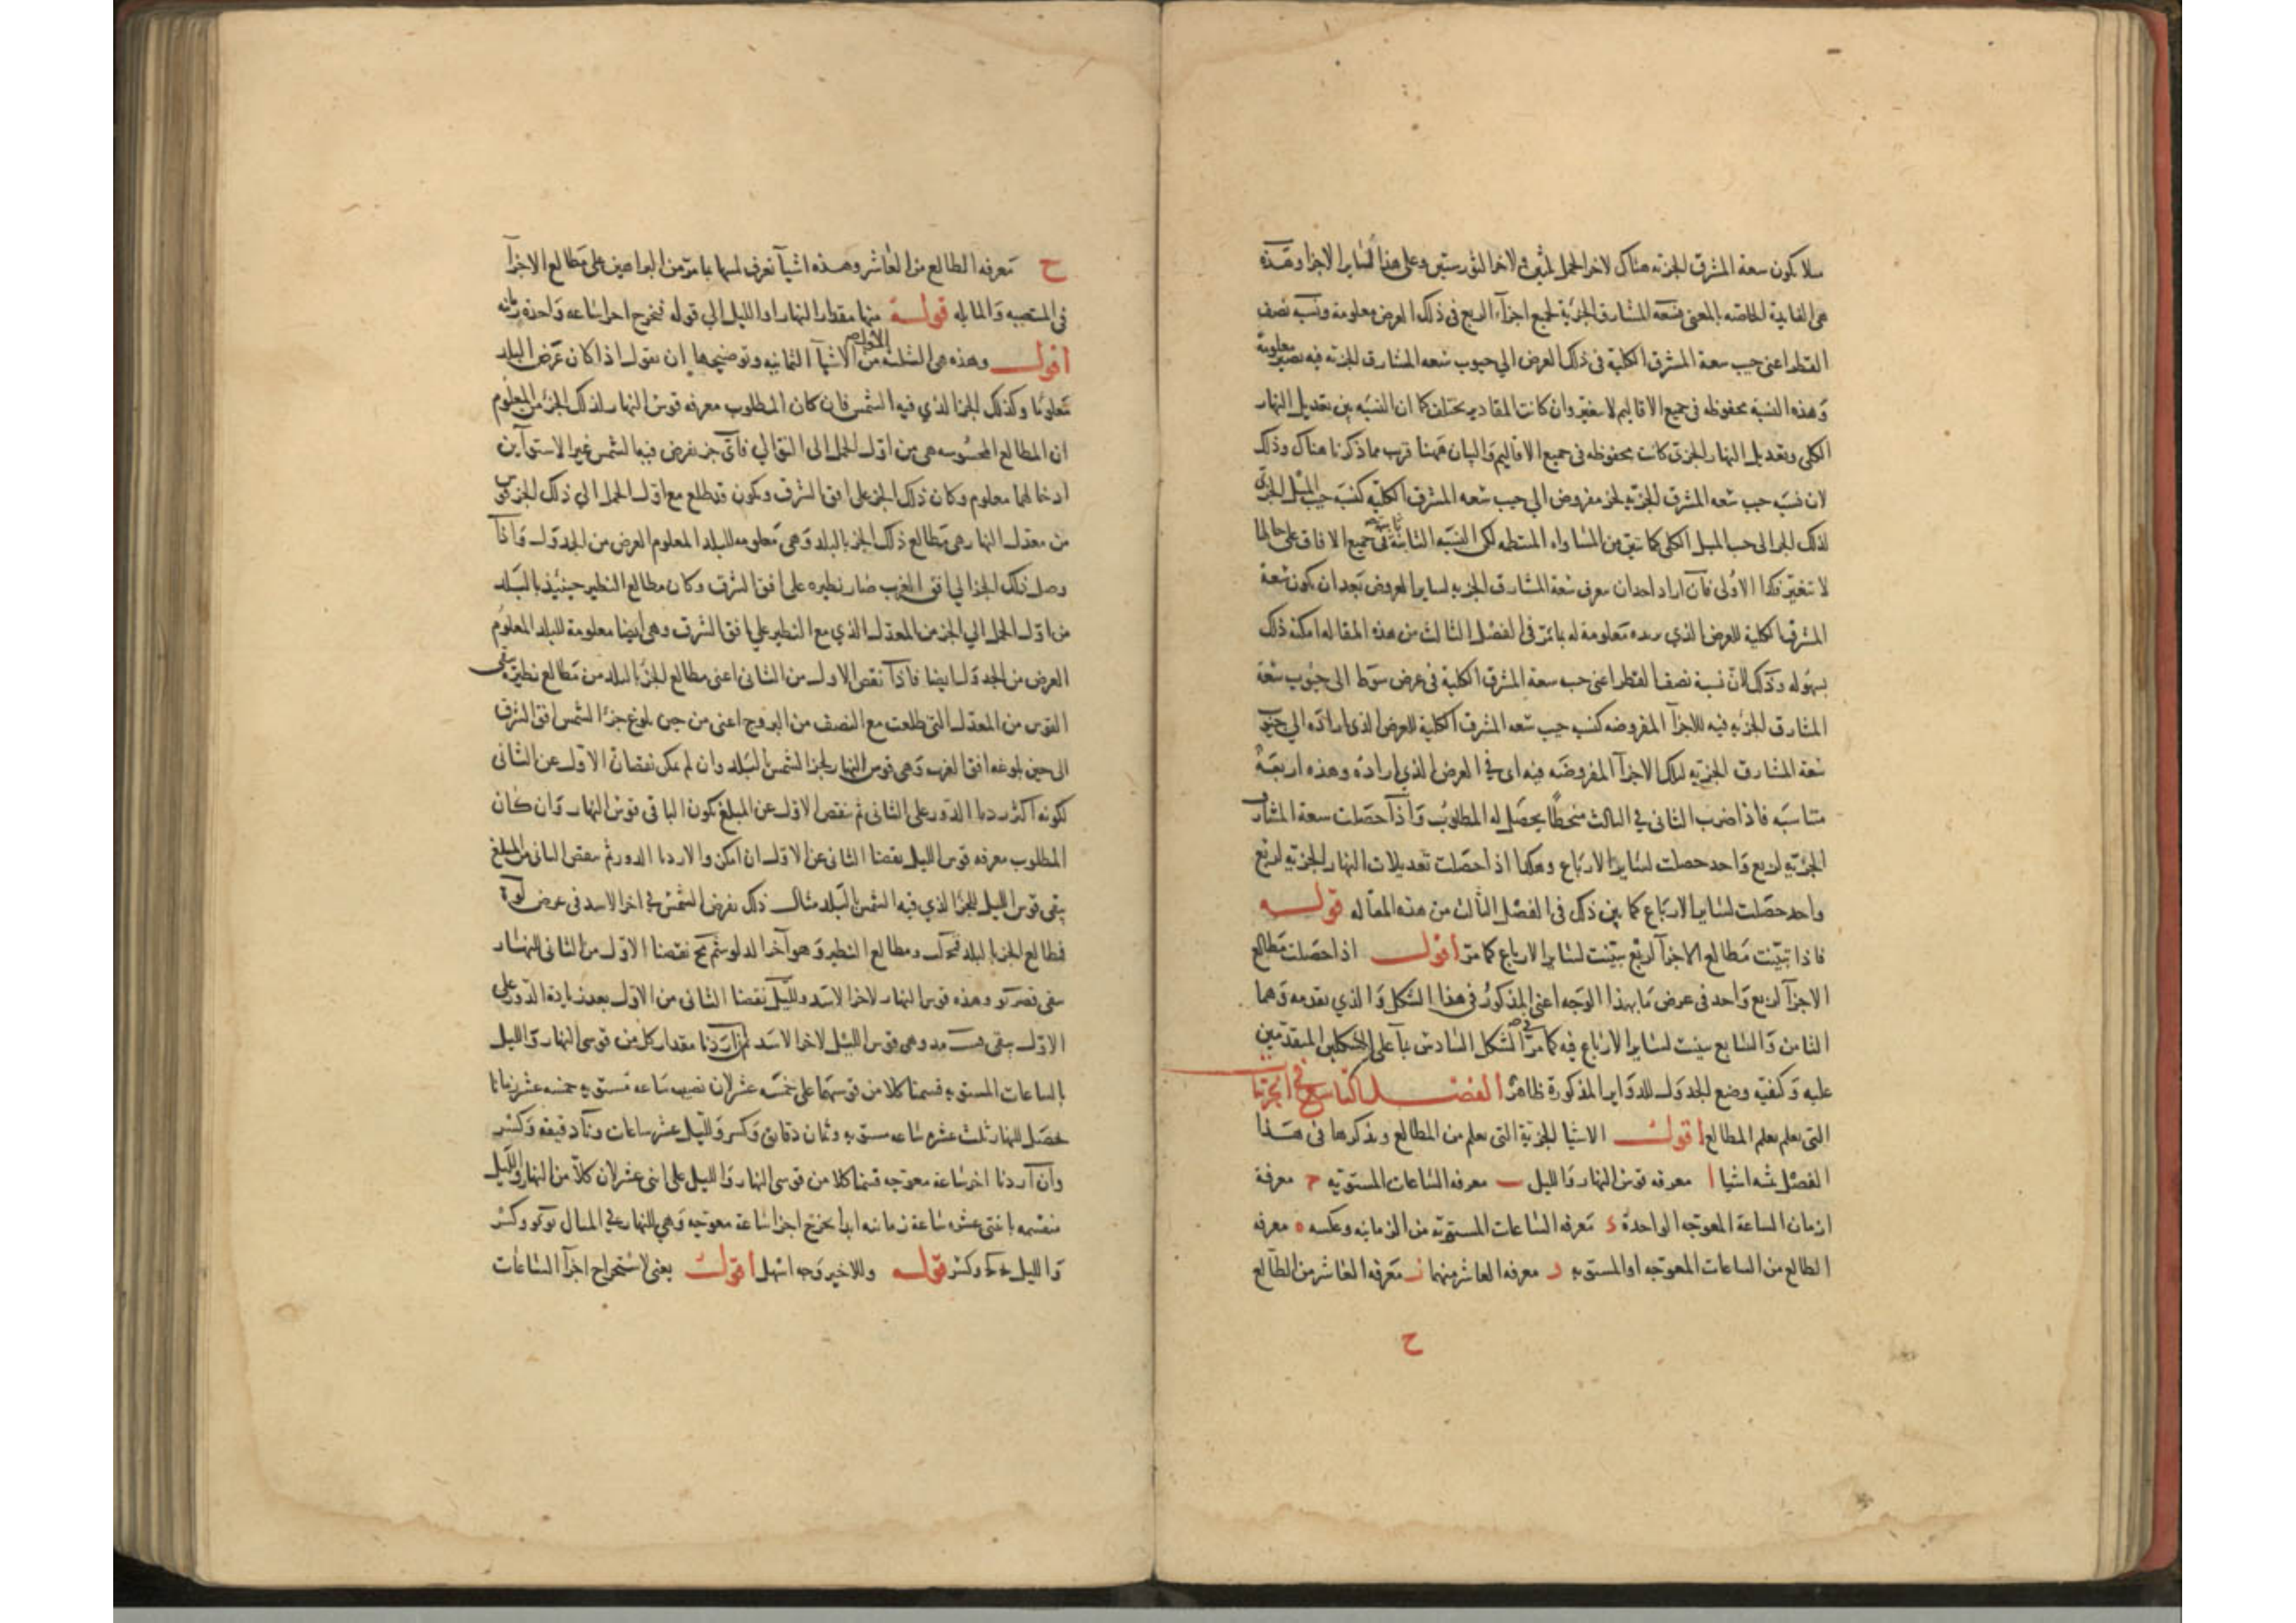 مثلا يكون سعة المشرق الجزئية هناك لاخر الحمل ولاخر الثور ستين وعلى هذا لساير الاجزا وهذه
هى الفايدة الخاصة بالمعنى فسعة المشارق الجزئية لجميع اجزاء الربع فى ذلك العرض معلومة ونسبة نصف
القطر اعنى جيب سعة المشرق الكلية فى ذلك العرض الى جيوب سعة المشارق الجزئية فيه تصير معلومة
وهذه النسبة محفوظة فى جميع الاقاليم لا يتغير وان كانت المقادير يختلف كما ان النسبة بين تعديل النهار
الكلى وتعديل النهار الجزئى كانت محفوظة فى جميع الاقاليم والبيان ههنا قريب مما ذكرنا هناك وذلك
لان نسبة جيب سعة المشرق الجزئية لجزء مفروض الى جيب سعة المشرق الكلية كنسبة جيب الميل الجزئى
لذلك الجزء الى جيب الميل الكلى كما تبين من المساواة المنتظمة لكن النسبة الثانية ثابتة فى جميع الافاق على حالها
لا تتغير فكذا الاولى فان اراد احد ان يعرف سعة المشارق الجزئية لساير العروض بعد ان يكون سعة
المشرق الكلية للعرض الذي يريده معلومة له بما مر فى الفصل الثالث من هذه المقالة امكنه ذلك
بسهولة وذلك لان نسبة نصف القطر اعنى جيب سعة المشرق الكلية فى عرض سوط الى جيوب سعة
المشارق الجزئية فيه للاجزا المفروضة كنسبة جيب سعة المشرق الكلية للعرض الذى اراده الى جيوب
سعة المشارق الجزئية لتلك الاجزا المفروضة فيه اى فى العرض الذي اراده وهذه اربعة
متناسبة فاذا ضرب الثانى فى الثالث منحطا يحصل له المطلوب واذا حصلت سعة المشارق
الجزئية لربع واحد حصلت لساير الارباع وهكذا اذا حصلت تعديلات النهار الجزئية لربع
واحد حصلت لساير الارباع كما بين ذلك فى الفصل الثالث من هذه المقالة قوله
فاذا تبينت مطالع الاجزا لربع تبينت لساير الارباع كما مر اقول اذا حصلت مطالع
الاجزا لربع واحد فى عرض ما بهذا الوجه اعنى المذكور فى هذا الشكل والذي تقدمه وهما
الثامن والسابع تبينت لساير الارباع فيه كما مر فى الشكل السادس بناء على الشكلين المتقدمين
عليه وكيفية وضع الجدول للدواير المذكورة ظاهرة الفصل التاسع فى الجزئيات
التى يعلم بعلم المطالع اقول الاشيا الجزئية التى يعلم من المطالع ويذكرها فى هذا
الفصل ثمنه اشيا ا معرفة قوس النهار والليل ب معرفه الساعات المستوية ج معرفة
ازمان الساعة المعوجه الواحدة د معرفة الساعات المستوية من الزمانيه وعكسه ه معرفه
الطالع من الساعات المعوجه او المستويه و معرفه العاشر منهما ز معرفه العاشر من الطالع
ح
ح معرفه الطالع من العاشر وهذه اشيآ تعرف لميها بما مر من البراهين على مطالع الاجزآ
فى المنتصبه والمايله قوله منها مقدار النهار او الليل الى قوله فيخرج اجزا ساعه واحدة زمانيه
اقول وهذه هى الثلثه الاول من الاشيآ الثمانيه وتوضيحها ان نقول اذا كان عرض البلد
معلوما وكذلك الجزا لذي فيه الشمس فان كان المطلوب معرفه قوس النهار لذلك الجزء من المعلوم
ان المطالع المحسوبه هى من اول الحمل الى التوالي فاى جزء نفرض فيه الشمس غير الاستوآين
اذ حالهما معلوم وكان ذلك الجزء على افق الشرق ويكون قد طلع مع اول الحمل الى ذلك الجزء قوس
من معدل النهار هى مطالع ذلك الجزء بالبلد وهى معلومه للبلد المعلوم العرض من الجدول واذا
وصل ذلك الجزا لي افق الغرب صار نظيره على افق الشرق وكان مطالع النظير حينئذ بالبلد
من اول الحمل الى الجزء من المعدل الذي مع النظير على افق الشرق وهى ايضا معلومة للبلد المعلوم
العرض من الجدول ايضا فاذا نقص الاول من الثانى اعنى مطالع الجزء بالبلد من مطالع نظيره بقى
القوس من المعدل التى طلعت مع النصف من البروج اعنى من حين بلوغ جزء الشمس افق الشرق
الى حين بلوغه افق الغرب وهى قوس النهار لجزء الشمس بالبلد وان لم يكن نقصان الاول عن الثانى
لكونه اكثر زدنا الدور على الثانى ثم ننقص الاول عن المبلغ يكون الباقى قوس النهار وان كان
المطلوب معرفه قوس الليل نقصنا الثانى عن الاول ان امكن والا زدنا الدور ثم ننقص الثانى من المبلغ
يبقى قوس الليل للجزا لذي فيه الشمس بالبلد مثال ذلك نفرض الشمس فى اخر الاسد فى عرض لو
فمطالع الجزء بالبلد ومطالع النظير وهو آخر الدلو نقصنا الاول من الثانى للنهار
بقى وهذه قوس النهار لاخر الاسد ولليل نقصنا الثانى من الاول بعد زيادة الدور على
الاول يبقى وهى قوس الليل لاخر الاسد ثم اذا اردنا مقدار كل من قوسى النهار والليل
بالساعات المستويه قسمنا كلا من قوسيهما على خمسه عشر لان نصيب ساعه مستويه خمسه عشر زمانا
حصل للنهار ثلث عشره ساعه مستويه وثمان دقايق وكسر ولليل عشر ساعات دقيقة وكسر
وان اردنا اجزا ساعة معوجه قسمنا كلا من قوسى النهار والليل على اثنى عشر لان كلا من النهار والليل
منقسمه باثنتى عشره ساعة زمانيه ابدا يخرج اجزا ساعة معوجه وهى للنهار فى المثال وكسر
ولليل وكسر قوله وللاخير وجه اسهل اقول يعنى لاستخراج اجزآ الساعات